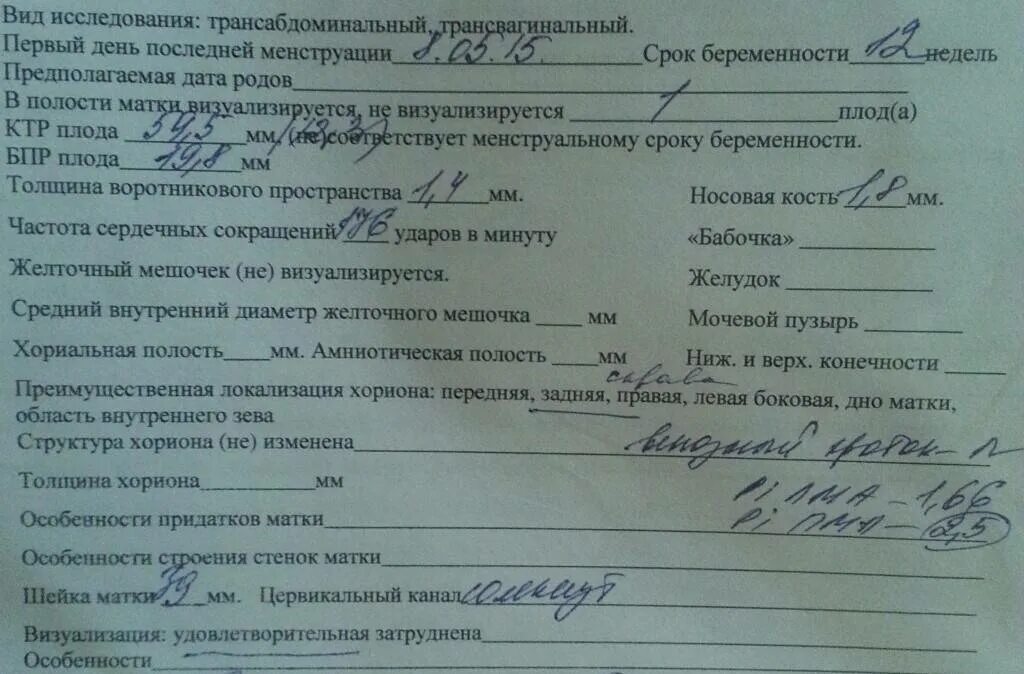 Вид исследования: трансабдоминальный, трансвагинальный.
Первый день последней менструации 8.05.15. Срок беременности 12 недель
Предполагаемая дата родов
В полости матки визуализируется, не визуализируется 1 плод(а)
КТР плода 59,5 мм, (не) соответствует менструальному сроку беременности.
БПР плода 19,8 мм
Толщина воротникового пространства 1,4 мм. Носовая кость 1,8 мм.
Частота сердечных сокращений 176 ударов в минуту «Бабочка»
Желточный мешочек (не) визуализируется. Желудок
Средний внутренний диаметр желточного мешочка мм Мочевой пузырь
Хориальная полость мм. Амниотическая полость мм Ниж. и верх. конечности
справа
Преимущественная локализация хориона: передняя, задняя, правая, левая боковая, дно матки,
область внутреннего зева
Структура хориона (не) изменена венозный проток - N
Толщина хориона мм
Pi ЛМА - 1,66
Особенности придатков матки Pi ПМА - 2,5
Особенности строения стенок матки
Шейка матки 39 мм. Цервикальный канал сомкнут
Визуализация: удовлетворительная затруднена
Особенности